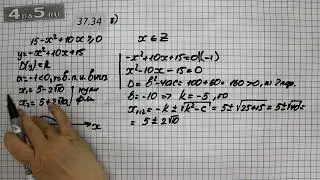 4DA5.RU
37.34 в)
15-x²+10x≥0
x ∈ Z
y=-x²+10x+15
D(y)=R
a=-1<0, то в. п. н. вниз
x₁=5-2√10 нули
x₂=5+2√10 ф-и
x
-x²+10x+15=0 |(-1)
x²-10x-15=0
D=b²-4ac=100+60=160>0, то 2 кор.
b=-10 ⇒ k=-5, то
x₁,₂=-k±√k²-c=5±√25+15=5±√40=
=5±2√10